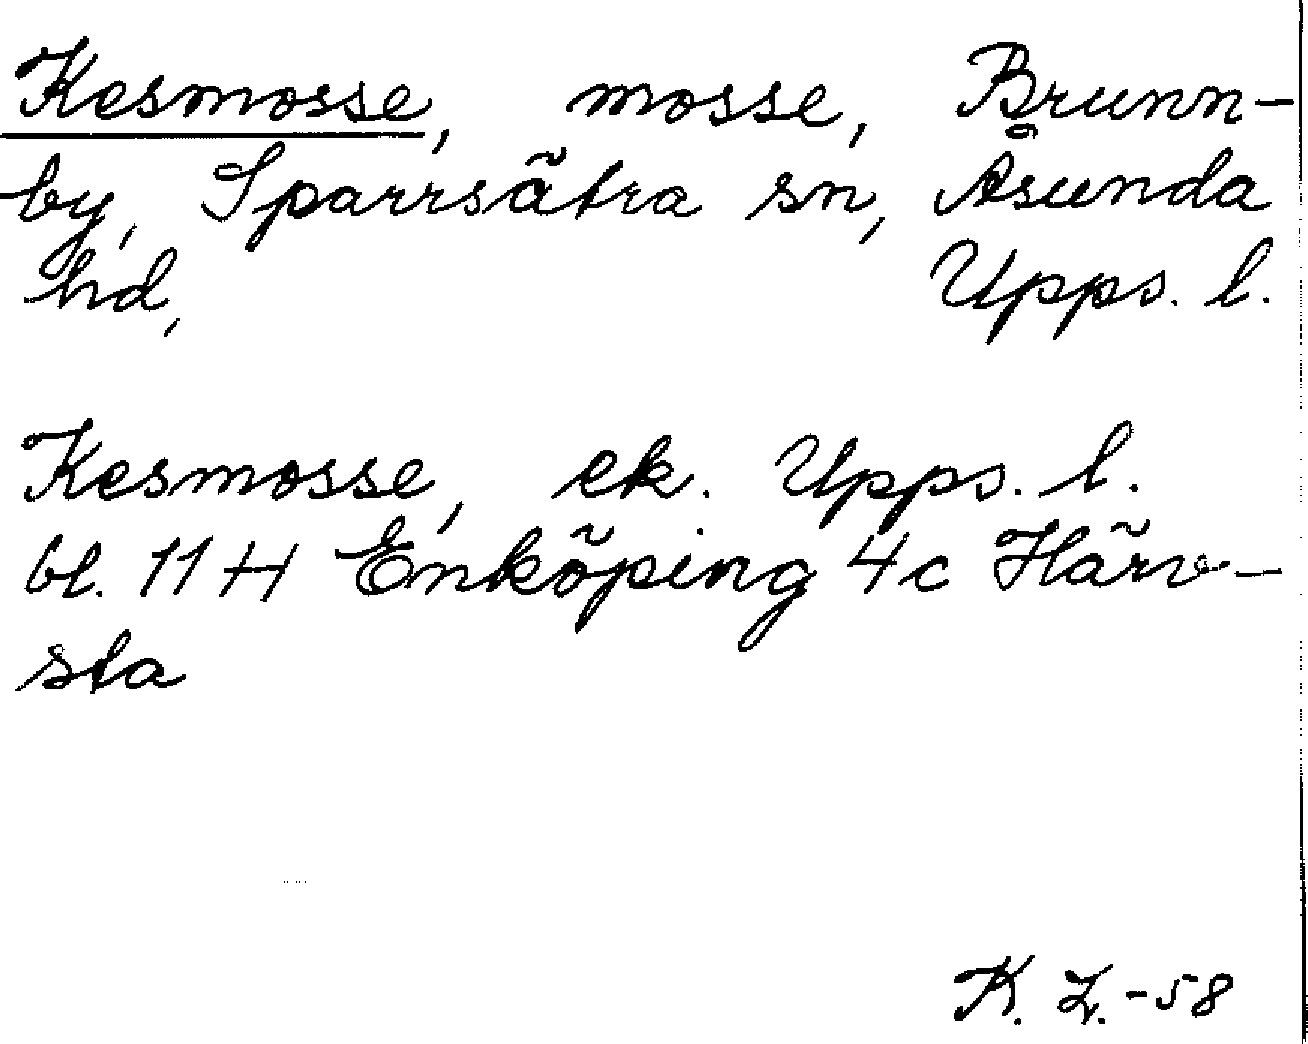 Kesmosse, mosse, Brunn-
by, Sparrsätra sn, Åsunda
hd, Upps. l.
Kesmosse, ek. Upps. l.
bl. 11 H Enköping 4c Härv-
sta
K. Z.-58